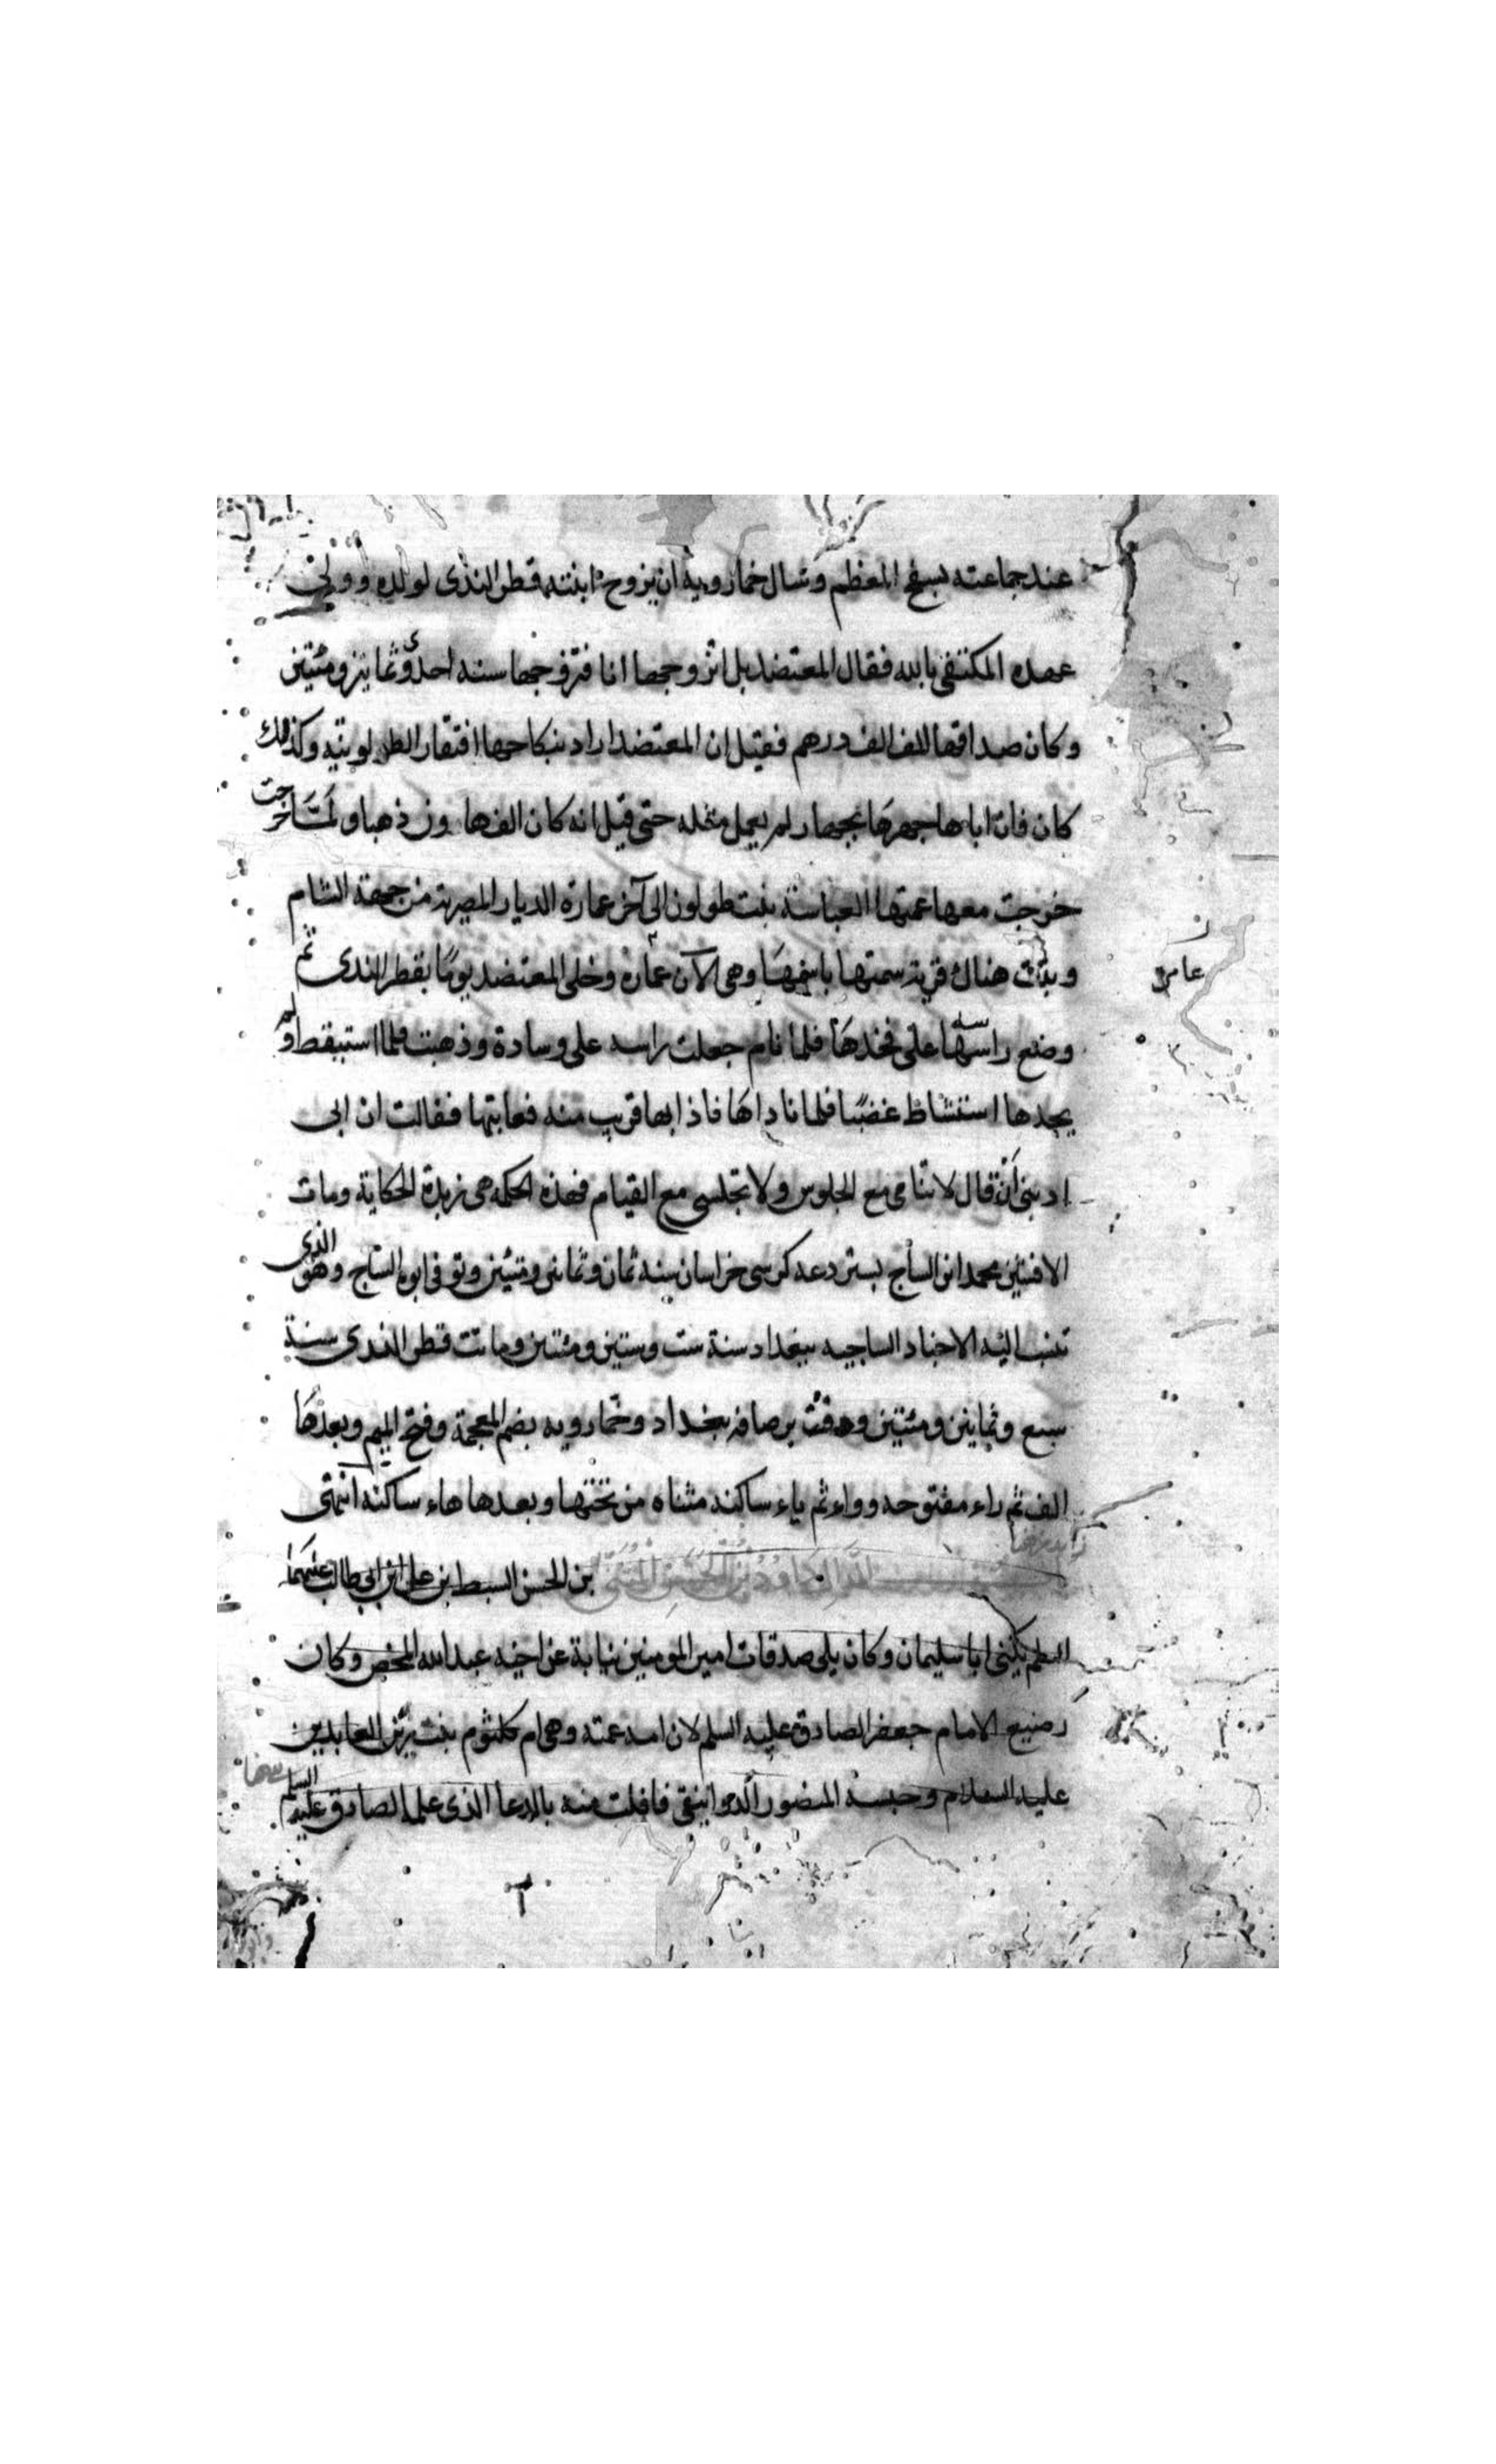 عند جماعته بسفح المعظم وسال خمارويه ان يزوج ابنته قطر الندى لولده وولي
عهده المكتفى بالله فقال المعتضد بل اتزوجها انا فتزوجها سنه احدى وثمانين ومئتين
وكان صداقها الف الف درهم فقيل ان المعتضد اراد بنكاحها افتقار الطولونيه وكذلك
كان فان اباها جهزها بجهاز لم يعمل مثله حتى قيل انه كان الف هاون ذهبا ولما خرجت
خرجت معها عمتها العباسة بنت طولون الى آخر عمارة الديار المصرية من جهة الشام
وبنت هناك قرية سمتها باسمها وهى الآن عماره وخلى المعتضد يوما بقطر الندى ثم
عامرة
وضع راسه على فخذها فلما نام جعلت راسه على وسادة وذهبت فلما استيقظ ولم
يجدها استشاط غضبا فلما ناداها فاذا بها قريب منه فعاتبها فقالت ان ابى
ادبنى أنه قال لا تنامى مع الجلوس ولا تجلسى مع القيام فهذه الحكمه هى زبدة الحكاية ومات
الافشين محمد ابن الساج كرسى خراسان سنه ثمان وثمانين ومئتين وتوفى ابوه الساج وهو الذى
تنسب اليه الاجناد الساجيه ببغداد سنة ست وستين ومئتين وماتت قطر الندى سنة
سبع وثمانين ومئتين ودفنت برصافة ببغداد وخمارويه بضم المعجمة وفتح الميم وبعدها
الف ثم راء مفتوحه وواو ثم ياء ساكنه مثناه من تحتها وبعدها هاء ساكنه انتهى
داود بن الحسن المثنى بن الحسن السبط ابن على ابن ابى طالب عليهما
السلم يكنى ابا سليمان وكان يلى صدقات امير المومنين نيابة عن اخيه عبد الله المحض وكان
رضيع الامام جعفر الصادق عليه السلم لان امه عمته وهى ام كلثوم بنت زين العابدين
عليه السلام وحبسه المنصور الدوانيقى فافلت منه بالدعا الذى علمه الصادق عليه السلم